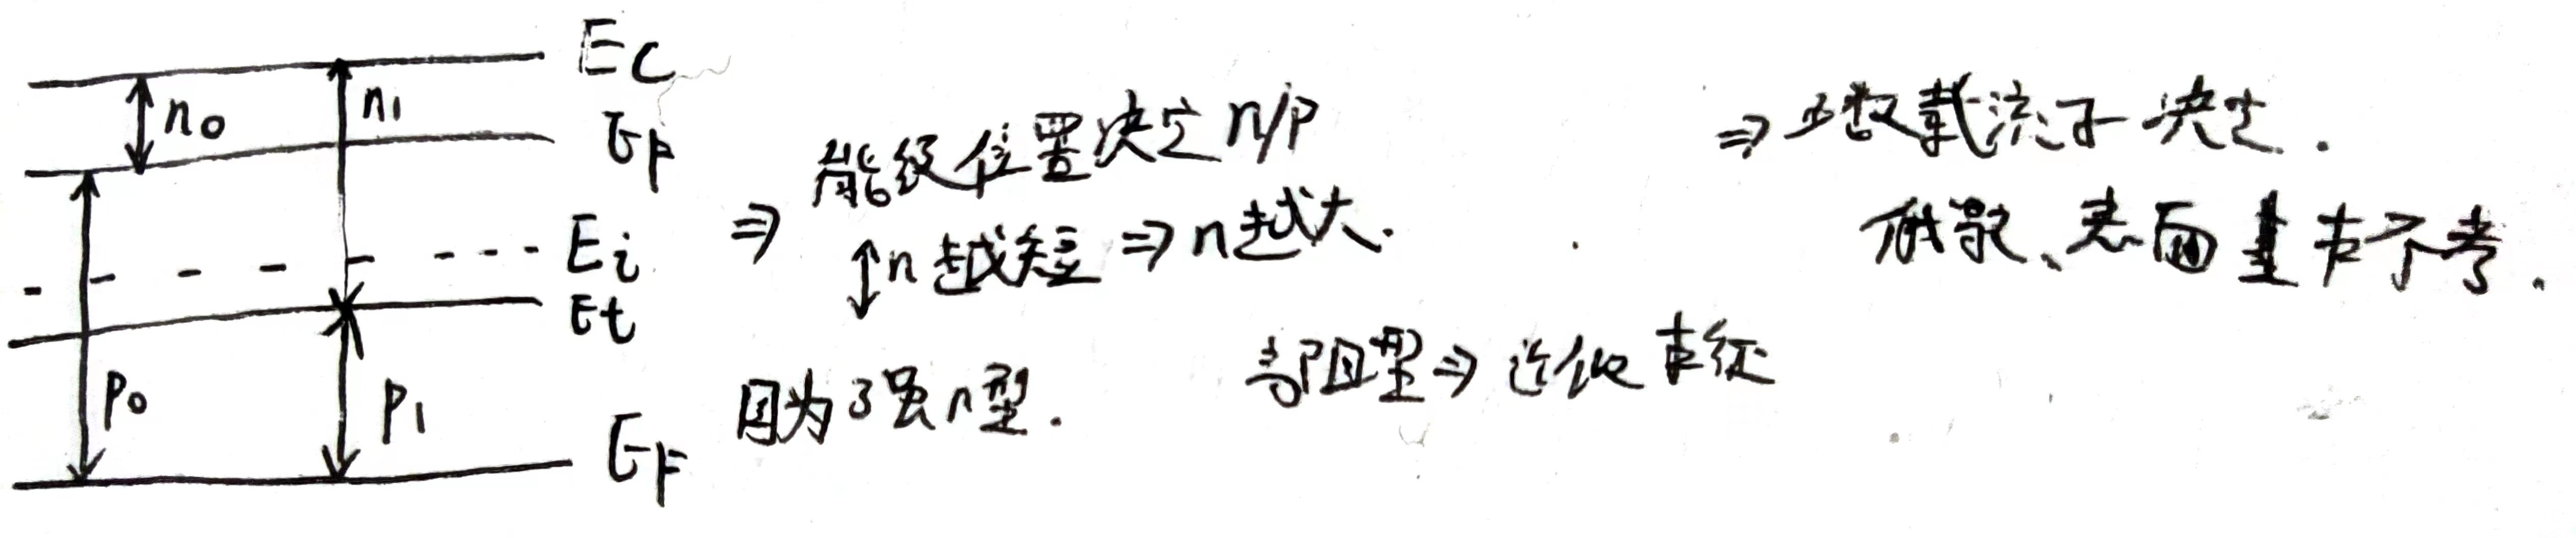 Ec
n₀ n₁
EF
Ei
Et
p₀ p₁
EF
⇒ 能级位置决定 n/p
↕n越短 ⇒ n越大.
因为了强n型. 高阻型 ⇒ 近似本征
⇒ 少数载流子决定.
俄歇、表面复合不考.